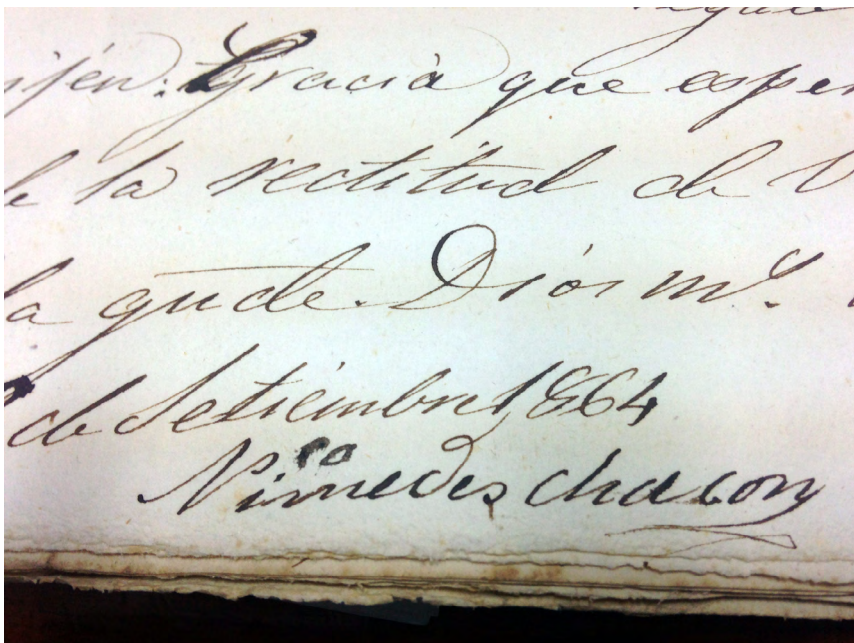 ijen: Gracia que esper
de la rectitud de V
la gude. Dios ms.
de Setiembre 1864
Nicomedes chacon